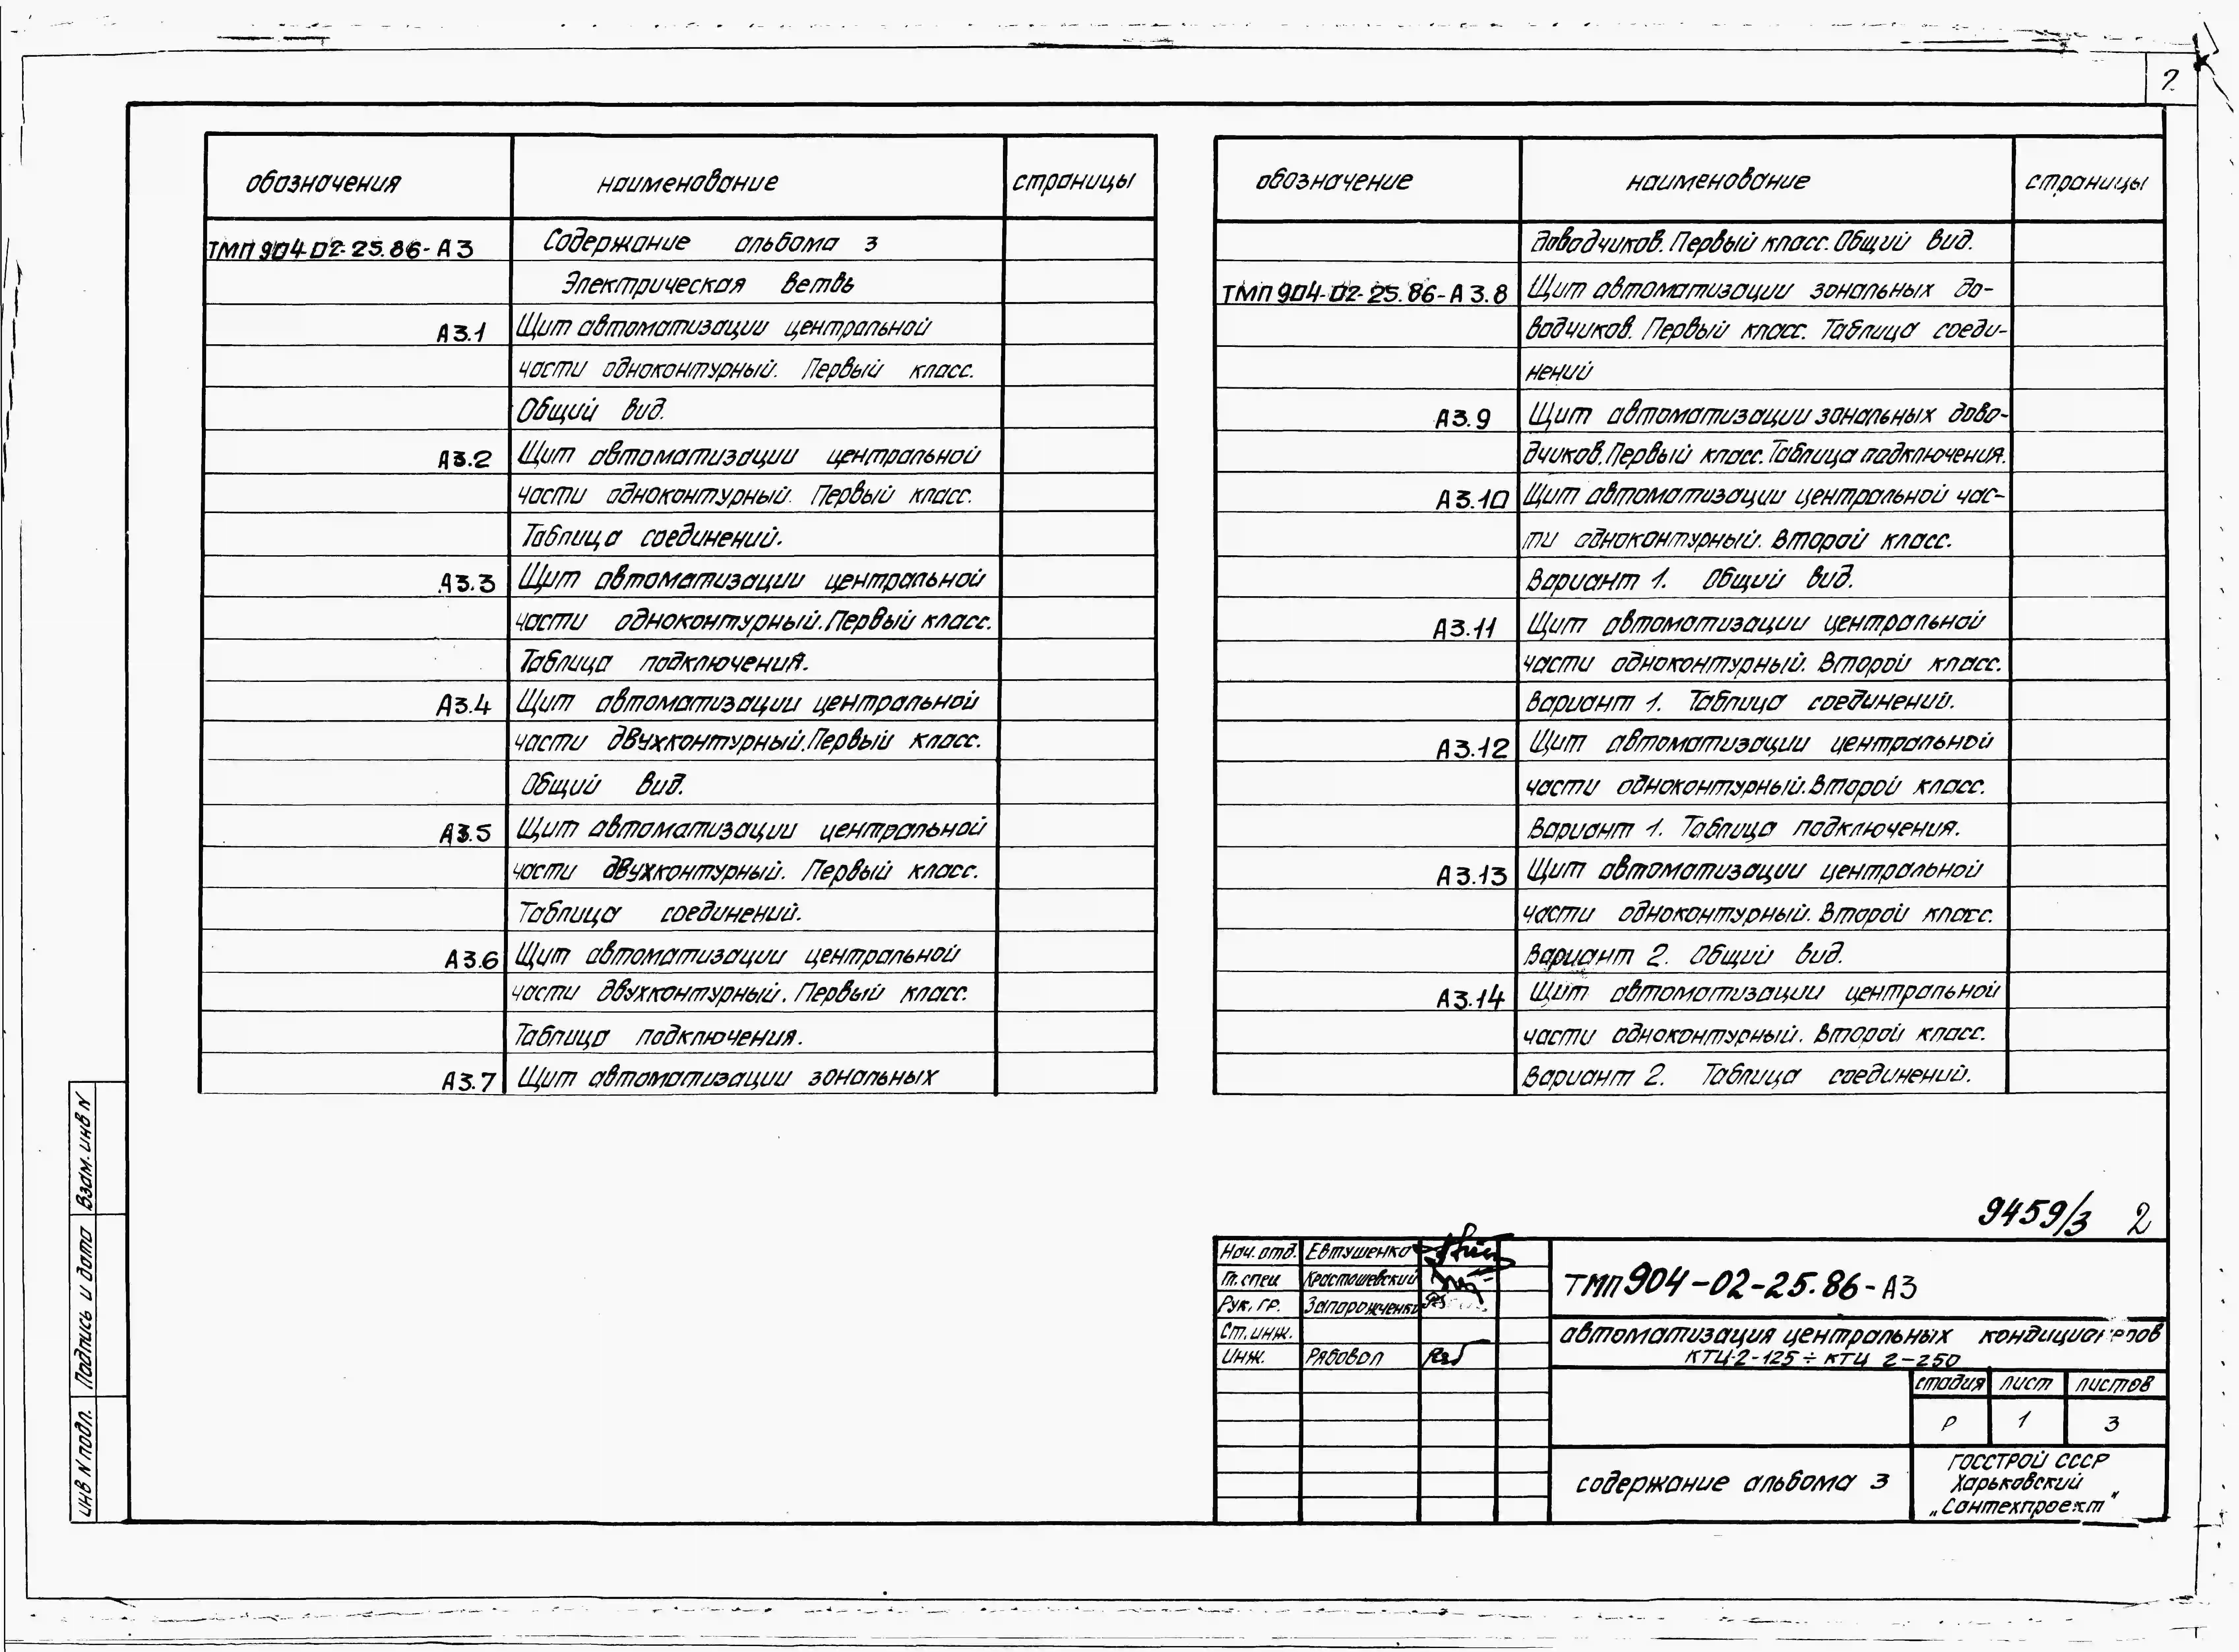 2
обозначения наименование страницы
ТМП 904-02-25.86-А3 Содержание альбома 3
Электрическая ветвь
А3.1 Щит автоматизации центральной
части одноконтурный. Первый класс.
Общий вид.
А3.2 Щит автоматизации центральной
части одноконтурный. Первый класс.
Таблица соединений.
А3.3 Щит автоматизации центральной
части одноконтурный. Первый класс.
Таблица подключения.
А3.4 Щит автоматизации центральной
части двухконтурный. Первый класс.
Общий вид.
А3.5 Щит автоматизации центральной
части двухконтурный. Первый класс.
Таблица соединений.
А3.6 Щит автоматизации центральной
части двухконтурный. Первый класс.
Таблица подключения.
А3.7 Щит автоматизации зональных
обозначение наименование страницы
доводчиков. Первый класс. Общий вид.
ТМП 904-02-25.86-А3.8 Щит автоматизации зональных до-
водчиков. Первый класс. Таблица соеди-
нений
А3.9 Щит автоматизации зональных дово-
дчиков. Первый класс. Таблица подключения.
А3.10 Щит автоматизации центральной час-
ти одноконтурный. Второй класс.
Вариант 1. Общий вид.
А3.11 Щит автоматизации центральной
части одноконтурный. Второй класс.
Вариант 1. Таблица соединений.
А3.12 Щит автоматизации центральной
части одноконтурный. Второй класс.
Вариант 1. Таблица подключения.
А3.13 Щит автоматизации центральной
части одноконтурный. Второй класс.
Вариант 2. Общий вид.
А3.14 Щит автоматизации центральной
части одноконтурный. Второй класс.
Вариант 2. Таблица соединений.
9459/3 2
Нач. отд. Евтушенко
Гл. спец Красташевский
Рук. гр. Запорожченко
Ст. инж.
Инж. Рябовол
ТМП 904-02-25.86-А3
автоматизация центральных кондиционеров
КТЦ-2-125 ÷ КТЦ 2-250
стадия лист листов
Р 1 3
содержание альбома 3
ГОССТРОЙ СССР
Харьковский
„Сантехпроект"
Взам. инв N
Подпись и дата
инв N подл.